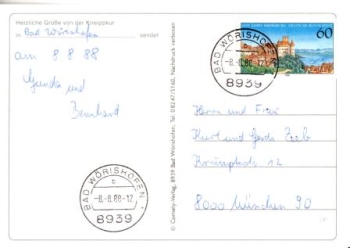 Herzliche Grüße von der Kneippkur
in Bad Wörishofen sendet
am 8 8 88
Gunda und
Bernhard
© Cornely-Verlag, 8939 Bad Wörishofen, Tel. 08247/5160, Nachdruck verboten
60
BAD WÖRISHOFEN
-8.-8.88-17
8939
BAD WÖRISHOFEN
-8.-8.88-17
8939
Herrn und Frau
Kurt und Gerda Zeeb
12
8000 München 90